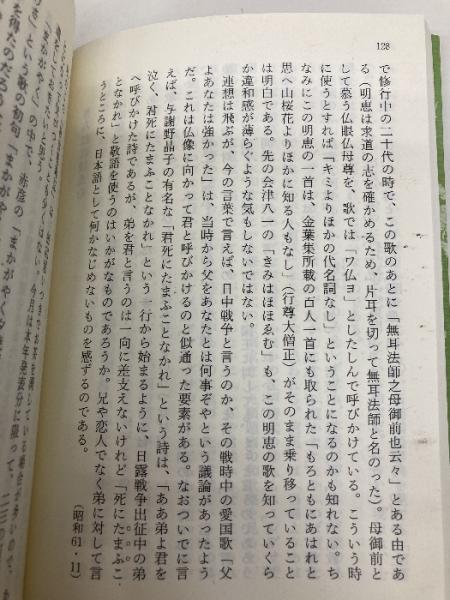 128
で修行中の二十代の時で、この歌のあとに「無耳法師之母御前也云々」とある由であ
る（明恵は求道の志を確かめるため、片耳を切って無耳法師と名のった）。母御前と
して慕う仏眼仏母尊を、歌では「ワ仏ヨ」としたしんで呼びかけている。こういう時
に使うとすれば「キミよりほかの代名詞なし」ということになるのかも知れない。ち
なみにこの明恵の一首は、金葉集所載の百人一首にも取られた「もろともにあはれと
思へ山桜花よりほかに知る人もなし」（行尊大僧正）がそのまま乗り移っていること
は明白である。先の会津八一の「きみはほほゑむ」も、この明恵の歌を知っていくら
か違和感が薄らぐような気もしないではない。
連想は飛ぶが、今の言葉で言えば、日中戦争と言うのか、その戦時中の愛国歌「父
よあなたは強かった」は、当時から父をあなたとは何事ぞやという議論があったよう
だ。これは仏像に向かって君と呼びかけるのと似通った要素がある。なおついでに言
えば、与謝野晶子の有名な「君死にたまふことなかれ」という詩は、「ああ弟よ君を
泣く、君死にたまふことなかれ」という一行から始まるように、日露戦争出征中の弟
へ呼びかけた詩であるが、弟を君と言うのは一向に差支えないけれど「死にたまふこ
となかれ」と敬語を使うのはいかがなものであろうか。兄や恋人でなく弟に対して言
うところに、日本語として何かなじめないものを感ずるのである。
（昭和61・11）
今月は本年発表分に限って、二三の
の中で、赤彦の「まかがやく夕焼
き」という歌の初句「まかがやく」
を得たのだろう